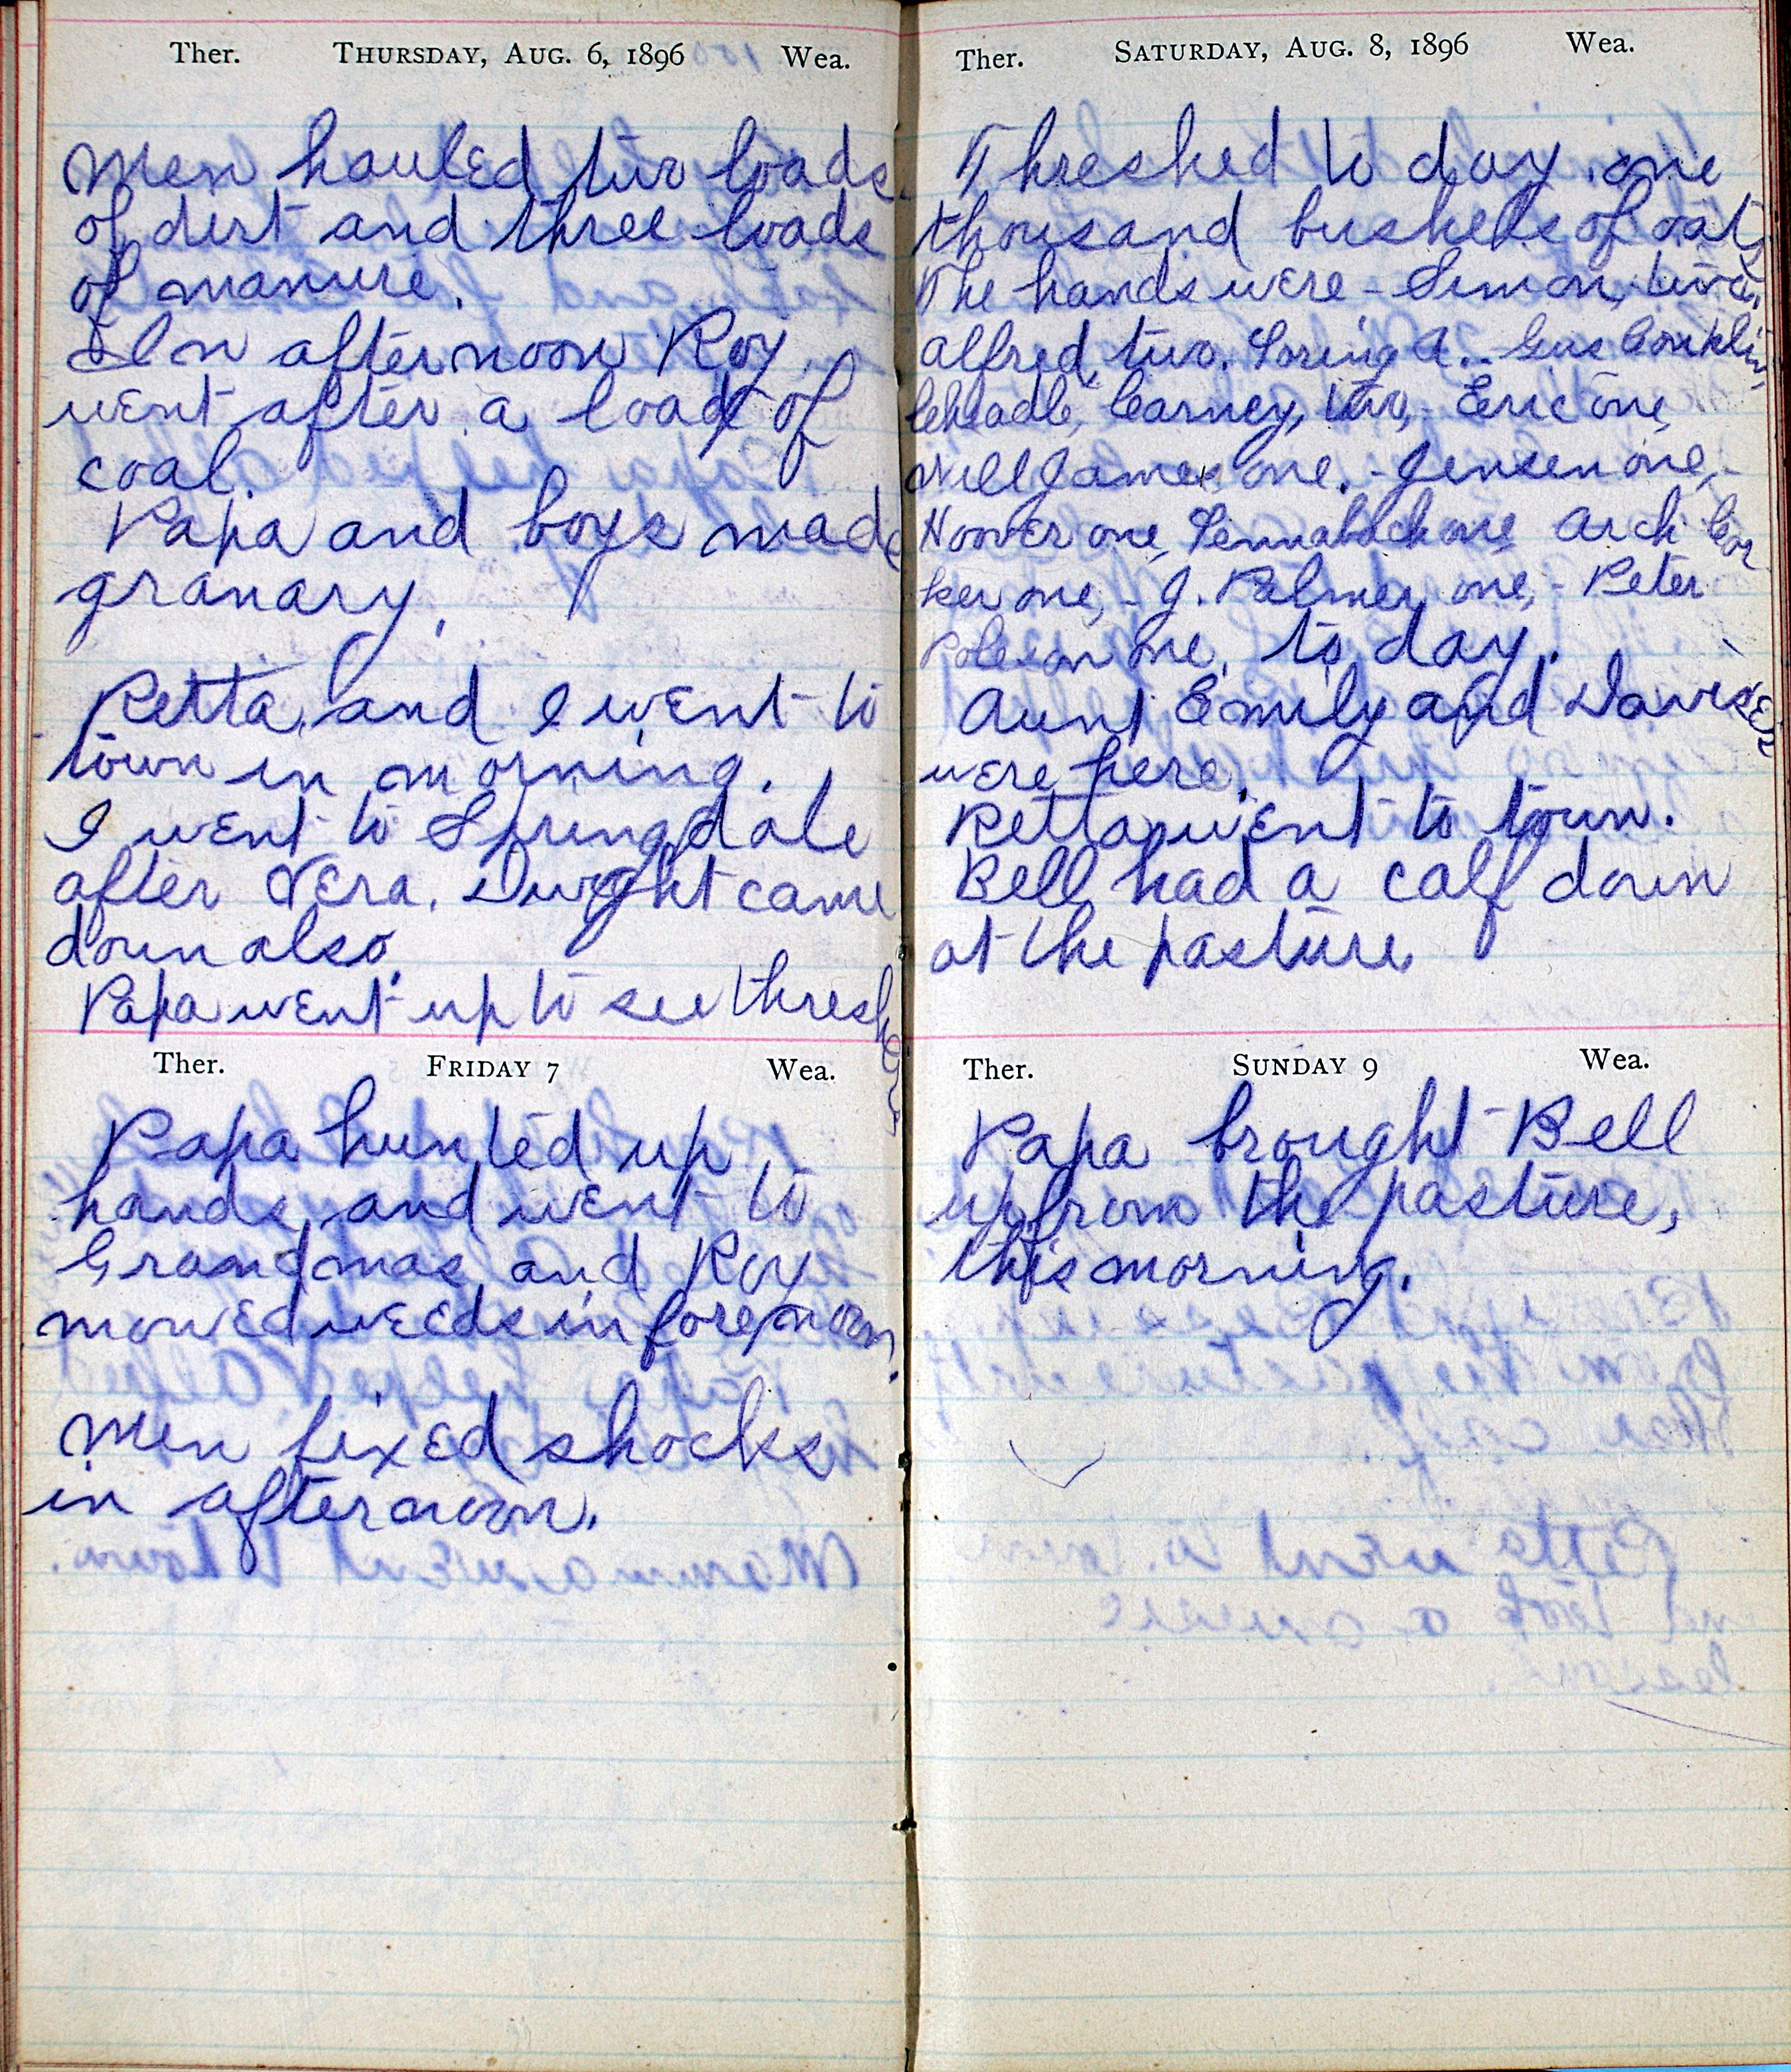 Ther. THURSDAY, AUG. 6, 1896 Wea.
Men hauled two loads
of dirt and three loads
of manure.
In afternoon Roy
went after a load of
coal.
Papa and boys made
granary.
Retta and I went to
town in morning.
I went to Springdale
after Vera. Dwight came
down also.
Papa went up to see threshers
Ther. FRIDAY 7 Wea.
Papa hunted up
hands and went to
Grandmas and Roy
mowed weeds in forenoon.
Men fixed shocks
in afternoon.
Ther. SATURDAY, AUG. 8, 1896 Wea.
Threshed to day one
thousand bushels of oats
The hands were - Simon, two,
Alfred, two. Loring A.. Gus Conklin,
Carney, two, - Eric one,
Will James one. - Jensen one, -
Hoover one, Pennabach one Arch Car
ker one, - J. Palmer one, - Peter
one, to day.
Aunt Emily and Davises
were here.
Retta went to town.
Bell had a calf down
at the pasture
Ther. SUNDAY 9 Wea.
Papa brought Bell
up from the pasture,
this morning.